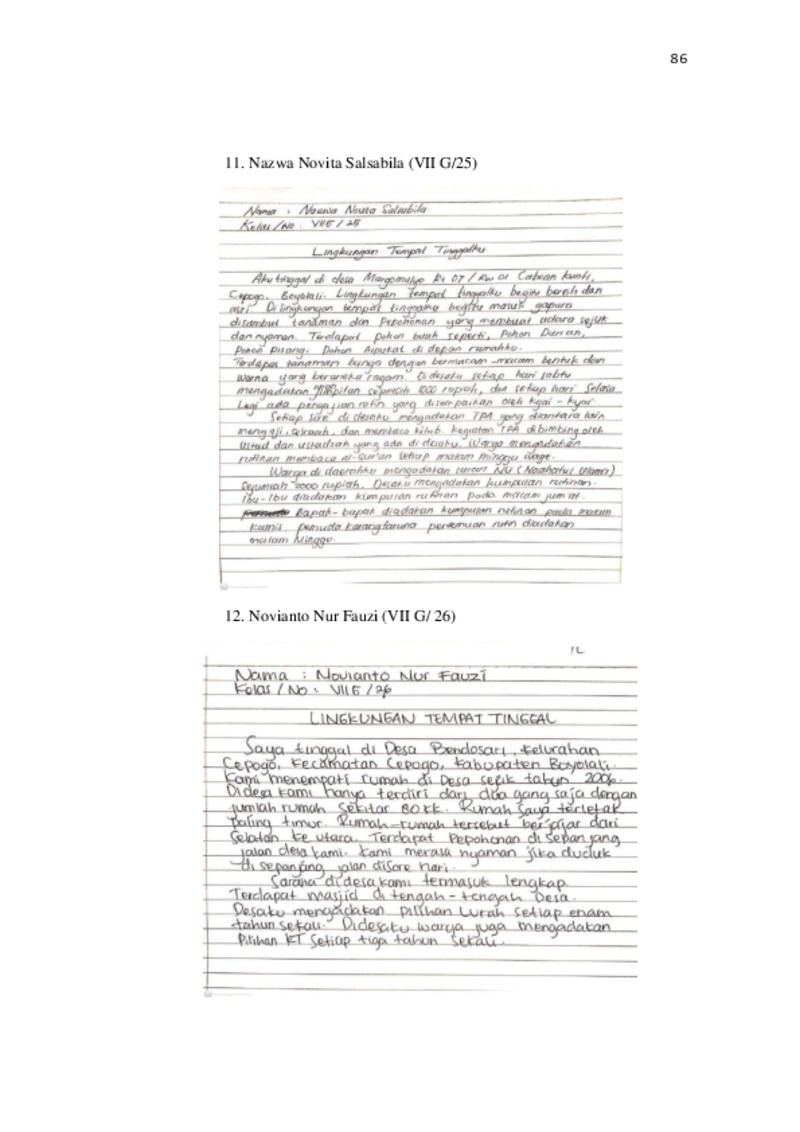 86
11. Nazwa Novita Salsabila (VII G/25)
Nama : Nazwa Novita Salsabila
Kelas / No : VII G / 25
Lingkungan Tempat Tinggalku
Aku tinggal di desa Margomulyo Rt 07 / Rw 01 Cabean kunti,
Cepogo, Boyolali. Lingkungan tempat tinggalku begitu bersih dan
asri. Di lingkungan tempat tinggalku begitu masuk gapura
disambut tanaman dan Pepohonan yang membuat udara sejuk
dan nyaman. Terdapat pohon buah seperti, Pohon Durian,
Pohon Pisang. Pohon Alpukat di depan rumahku.
Terdapat tanaman bunga dengan bermacam-macam bentuk dan
warna yang beraneka ragam. Di desaku setiap hari sabtu
mengadakan sejumlah 1000 rupiah, dan setiap hari Selasa
Legi ada pengajian rutin yang disampaikan oleh kyai - kyai.
Setiap sore di desaku mengadakan TPA yang diantara lain
mengaji, qiraah, dan membaca kitab. kegiatan TPA dibimbing oleh
ustad dan ustadzah yang ada di desaku. Warga mengadakan
rutinan membaca al-Qur'an setiap malam minggu wage.
Warga di daerahku mengadakan iuran NU (Nahdhatul Ulama)
Sejumlah 2000 rupiah. Desaku mengadakan kumpulan rutinan.
Ibu-Ibu diadakan kumpulan rutinan pada malam jum'at.
Bapak-bapak diadakan kumpulan rutinan pada malam
kamis. pemuda karangtaruna pertemuan rutin diadakan
malam Minggu.
12. Novianto Nur Fauzi (VII G/ 26)
12
Nama : Novianto Nur Fauzi
Kelas / No : VII G / 26
LINGKUNGAN TEMPAT TINGGAL
Saya tinggal di Desa Bendosari, kelurahan
Cepogo, Kecamatan Cepogo, Kabupaten Boyolali.
Kami menempati rumah di Desa sejak tahun 2006.
Didesa kami hanya terdiri dari dua gang saja dengan
jumlah rumah Sekitar 80 KK. Rumah saya terletak
paling timur. Rumah-rumah tersebut berjajar dari
Selatan ke utara. Terdapat Pepohonan di sepanjang
jalan desa kami. Kami merasa nyaman jika duduk
di sepanjang jalan disore hari.
Sarana di desa kami termasuk lengkap
Terdapat masjid di tengah-tengah Desa.
Desaku mengadakan pilihan Lurah setiap enam
tahun sekali. Didesaku warga juga mengadakan
Pilihan RT Setiap tiga tahun Sekali.